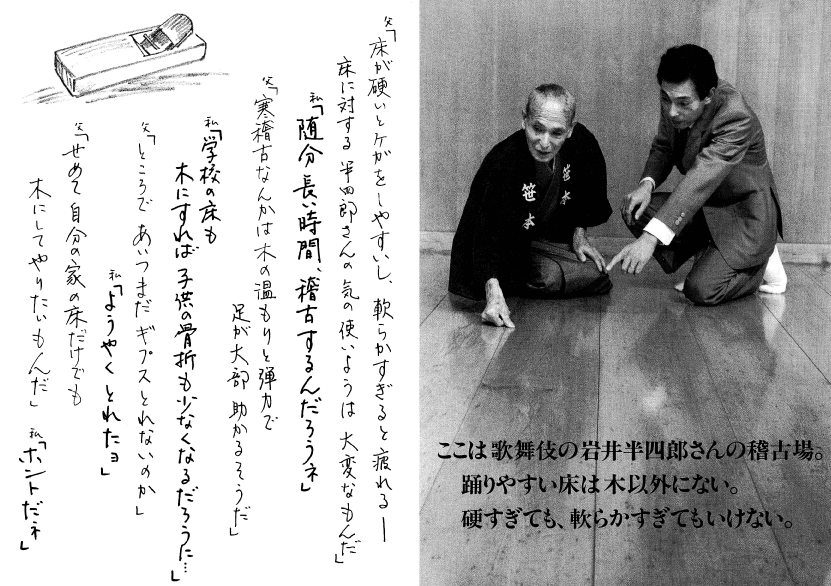 父「床が硬いとケガをしやすいし、軟らかすぎると疲れる―
床に対する半四郎さんの気の使いようは大変なもんだ」
私「随分長い時間、稽古するんだろうネ」
父「寒稽古なんかは木の温もりと弾力で
足が大部助かるそうだ」
私「学校の床も
木にすれば子供の骨折も少なくなるだろうに…」
父「ところであいつまだギプスとれないのか」
私「ようやくとれたヨ」
父「せめて自分の家の床だけでも
木にしてやりたいもんだ」
私「ホントだネ」
笹本
笹本
ここは歌舞伎の岩井半四郎さんの稽古場。
踊りやすい床は木以外にない。
硬すぎても、軟らかすぎてもいけない。